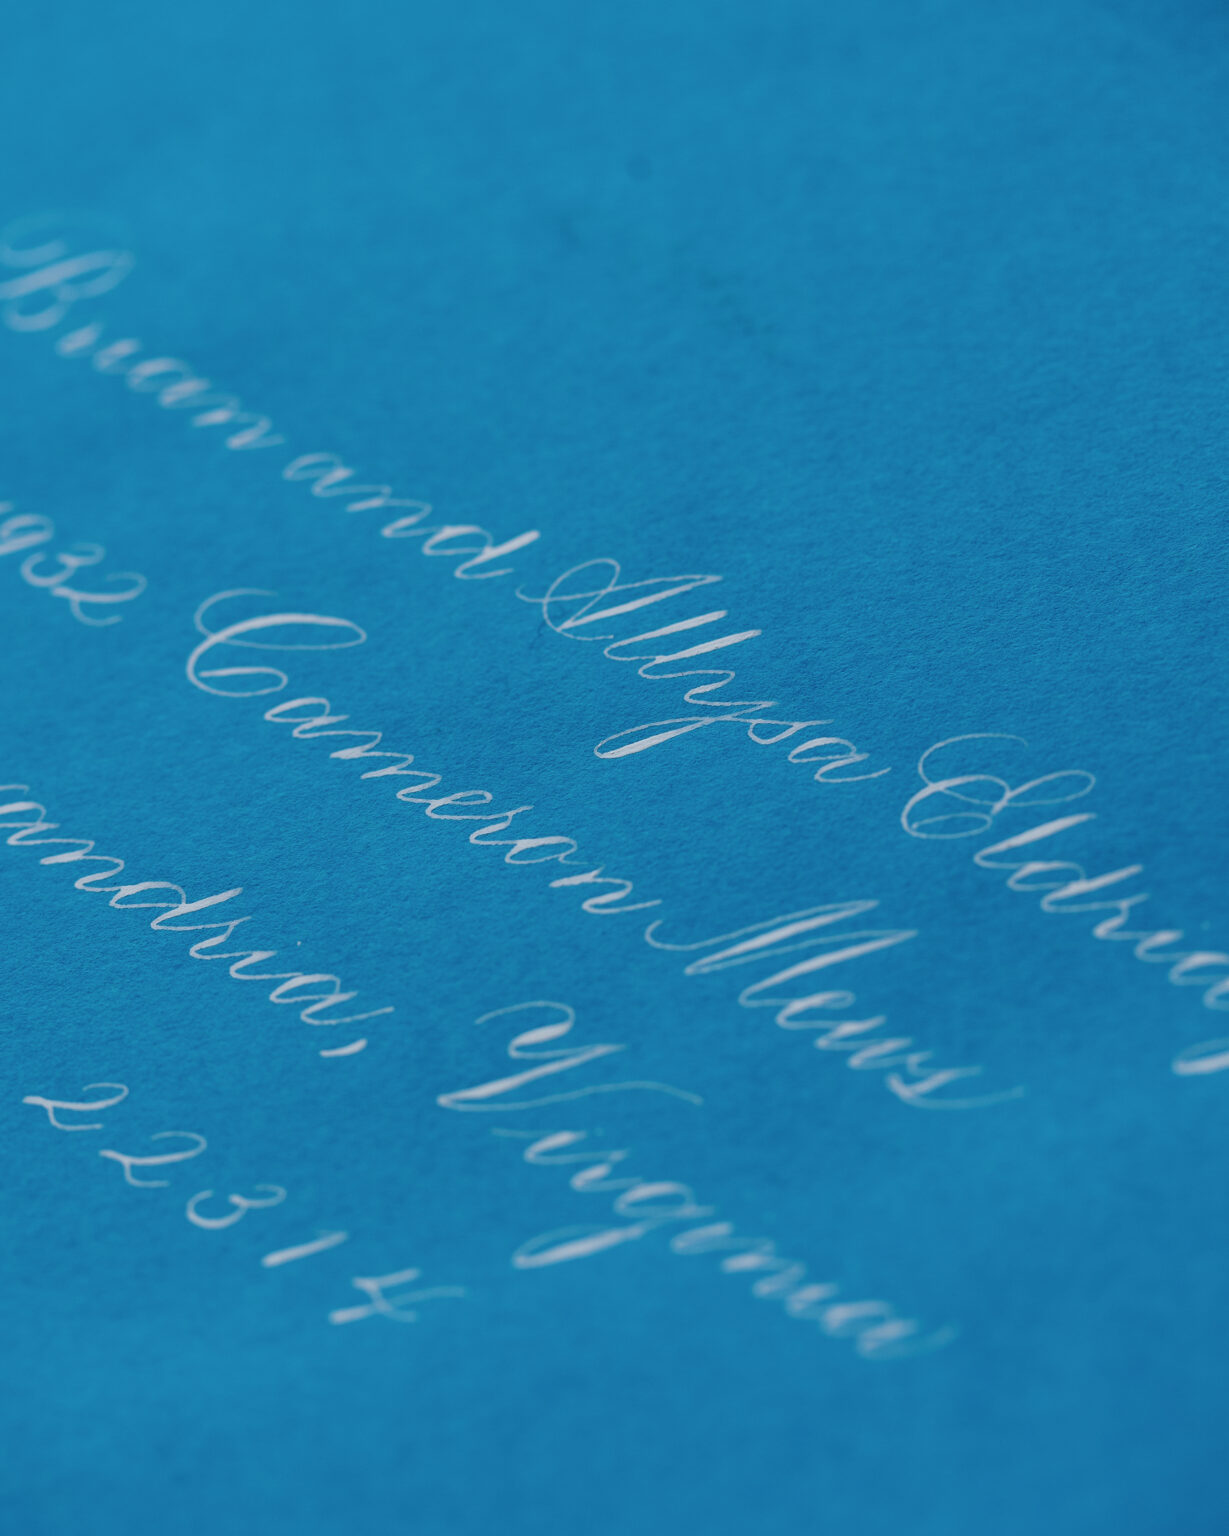 Brian and Allysa Eldrid
1932 Cameron Mews
andria, Virginia
22314